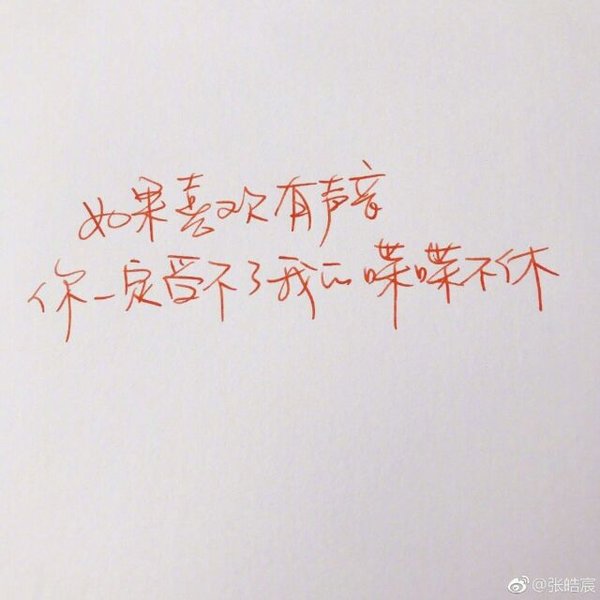 如果喜欢有声音
你一定受不了我的喋喋不休
@张皓宸